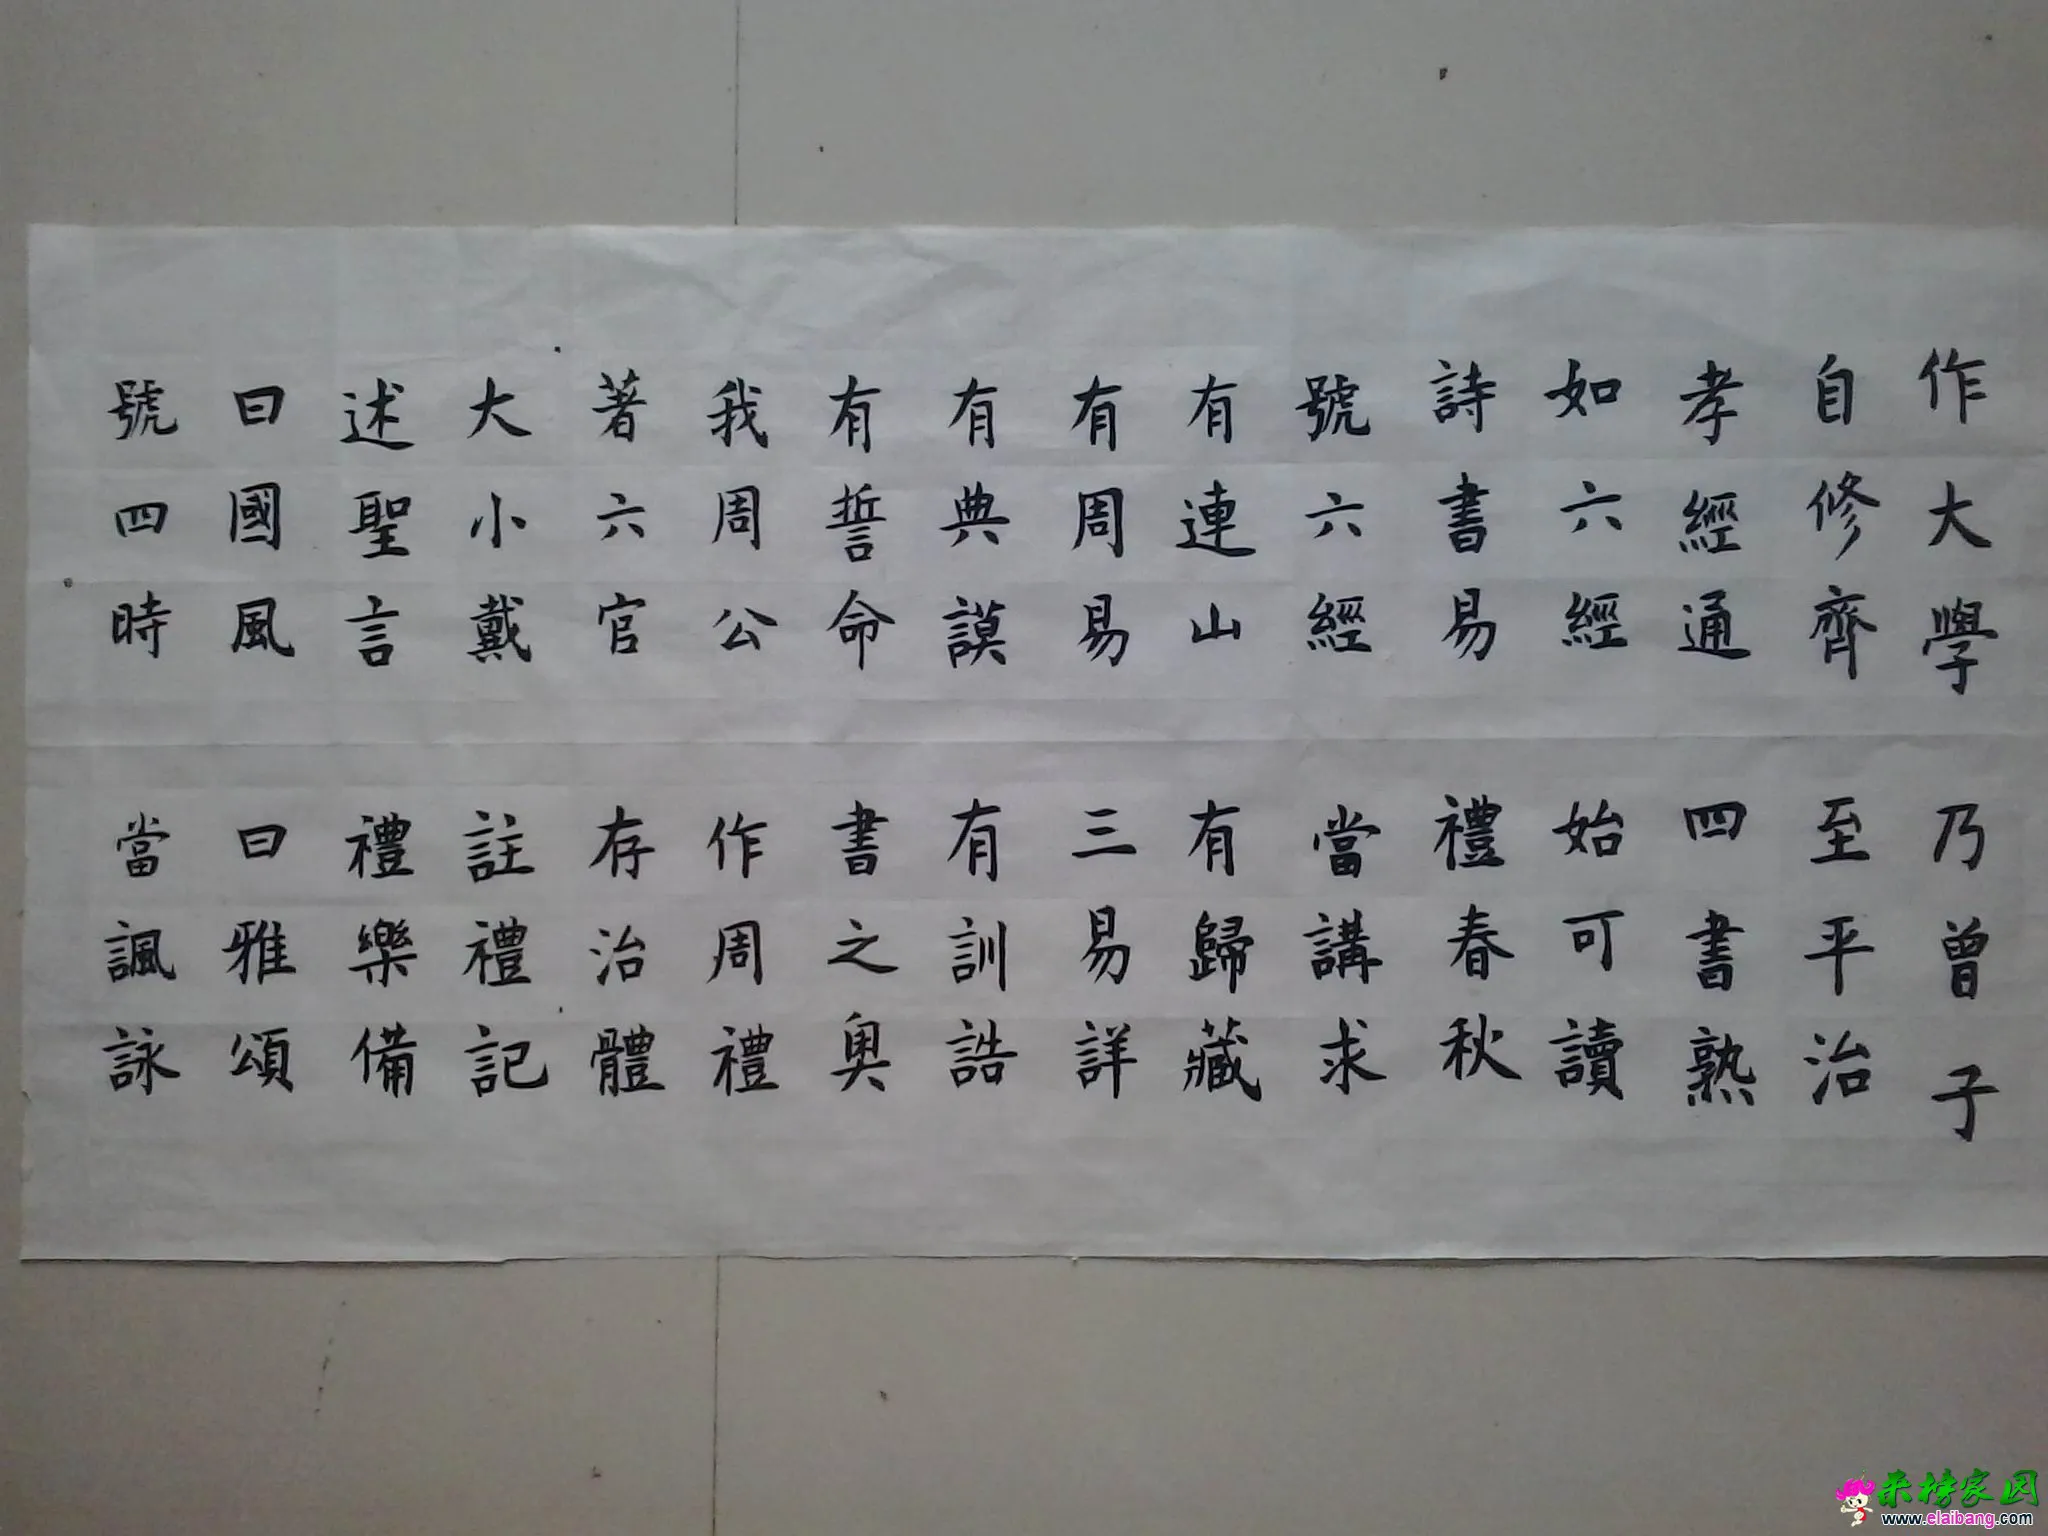 作大學乃曾子
自修齊至平治
孝經通四書熟
如六經始可讀
詩書易禮春秋
號六經當講求
有連山有歸藏
有周易三易詳
有典謨有訓誥
有誓命書之奧
我周公作周禮
著六官存治體
大小戴註禮記
述聖言禮樂備
曰國風曰雅頌
號四時當諷詠
来榜家园
www.elaibang.com